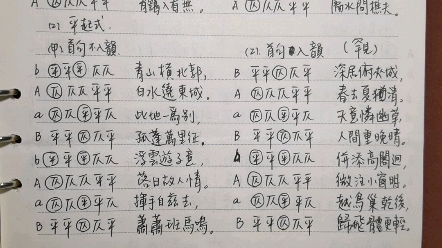 A ㊄仄仄平平 有錫入首無。 A ㊄仄仄平平 隔水問樵夫。
(2) 平起式
(甲) 首句不入韻 (2). 首句入韻 (罕見)
平平平仄仄 青山橫北郭, B 平平仄仄平 深居俯夾城,
A 仄仄仄平平 白水遶東城。 A 仄仄仄平平 春去夏猶清。
a 仄仄平平仄 此地一為別, a 仄仄平平仄 天意憐幽草,
B 平平仄仄平 孤蓬萬里征。 B 平平仄仄平 人間重晚晴。
b 平平平仄仄 浮雲遊子意, b 平平平仄仄 併添高閣迥,
A 仄仄仄平平 落日故人情。 A 仄仄仄平平 微注小窗明。
a 仄仄平平仄 揮手自茲去, a 仄仄平平仄 越鳥巢乾後,
B 平平仄仄平 蕭蕭班馬鳴。 B 平平仄仄平 歸飛體更輕。